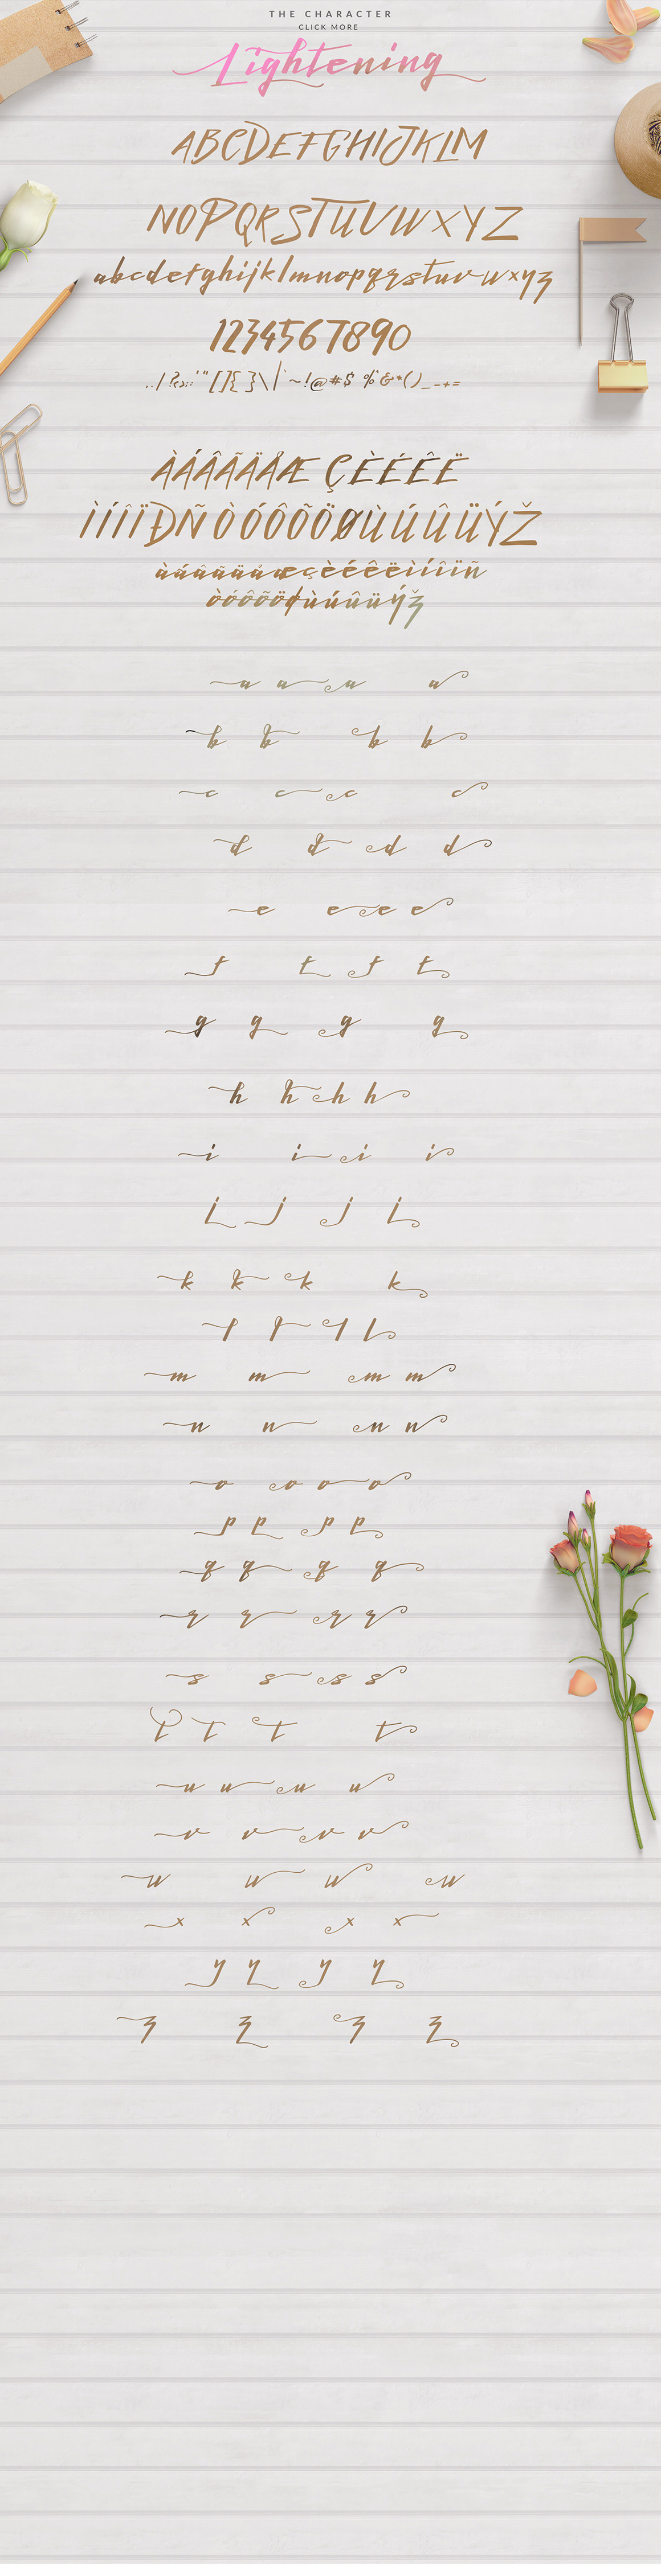 THE CHARACTER
CLICK MORE
Lightening
ABCDEFGHIJKLM
NOPQRSTUVWXYZ
abcdefghijklmnopqrstuvwxyz
1234567890
ÀÁÂÃÄÅÆ ÇÈÉÊË
ÌÍÎÏÐÑÒÓÔÕÖØÙÚÛÜÝŽ
àáâãäåæçèéêëìíîïñ
òóôõöøùúûüýž
a a a a
b b b b
c c c c
d d d d
e e e e
f f f f
g g g g
h h h h
i i i i
j j j j
k k k k
l l l l
m m m m
n n n n
o o o o
p p p p
q q q q
r r r r
s s s s
t t t t
u u u u
v v v v
w w w w
x x x x
y y y y
z z z z